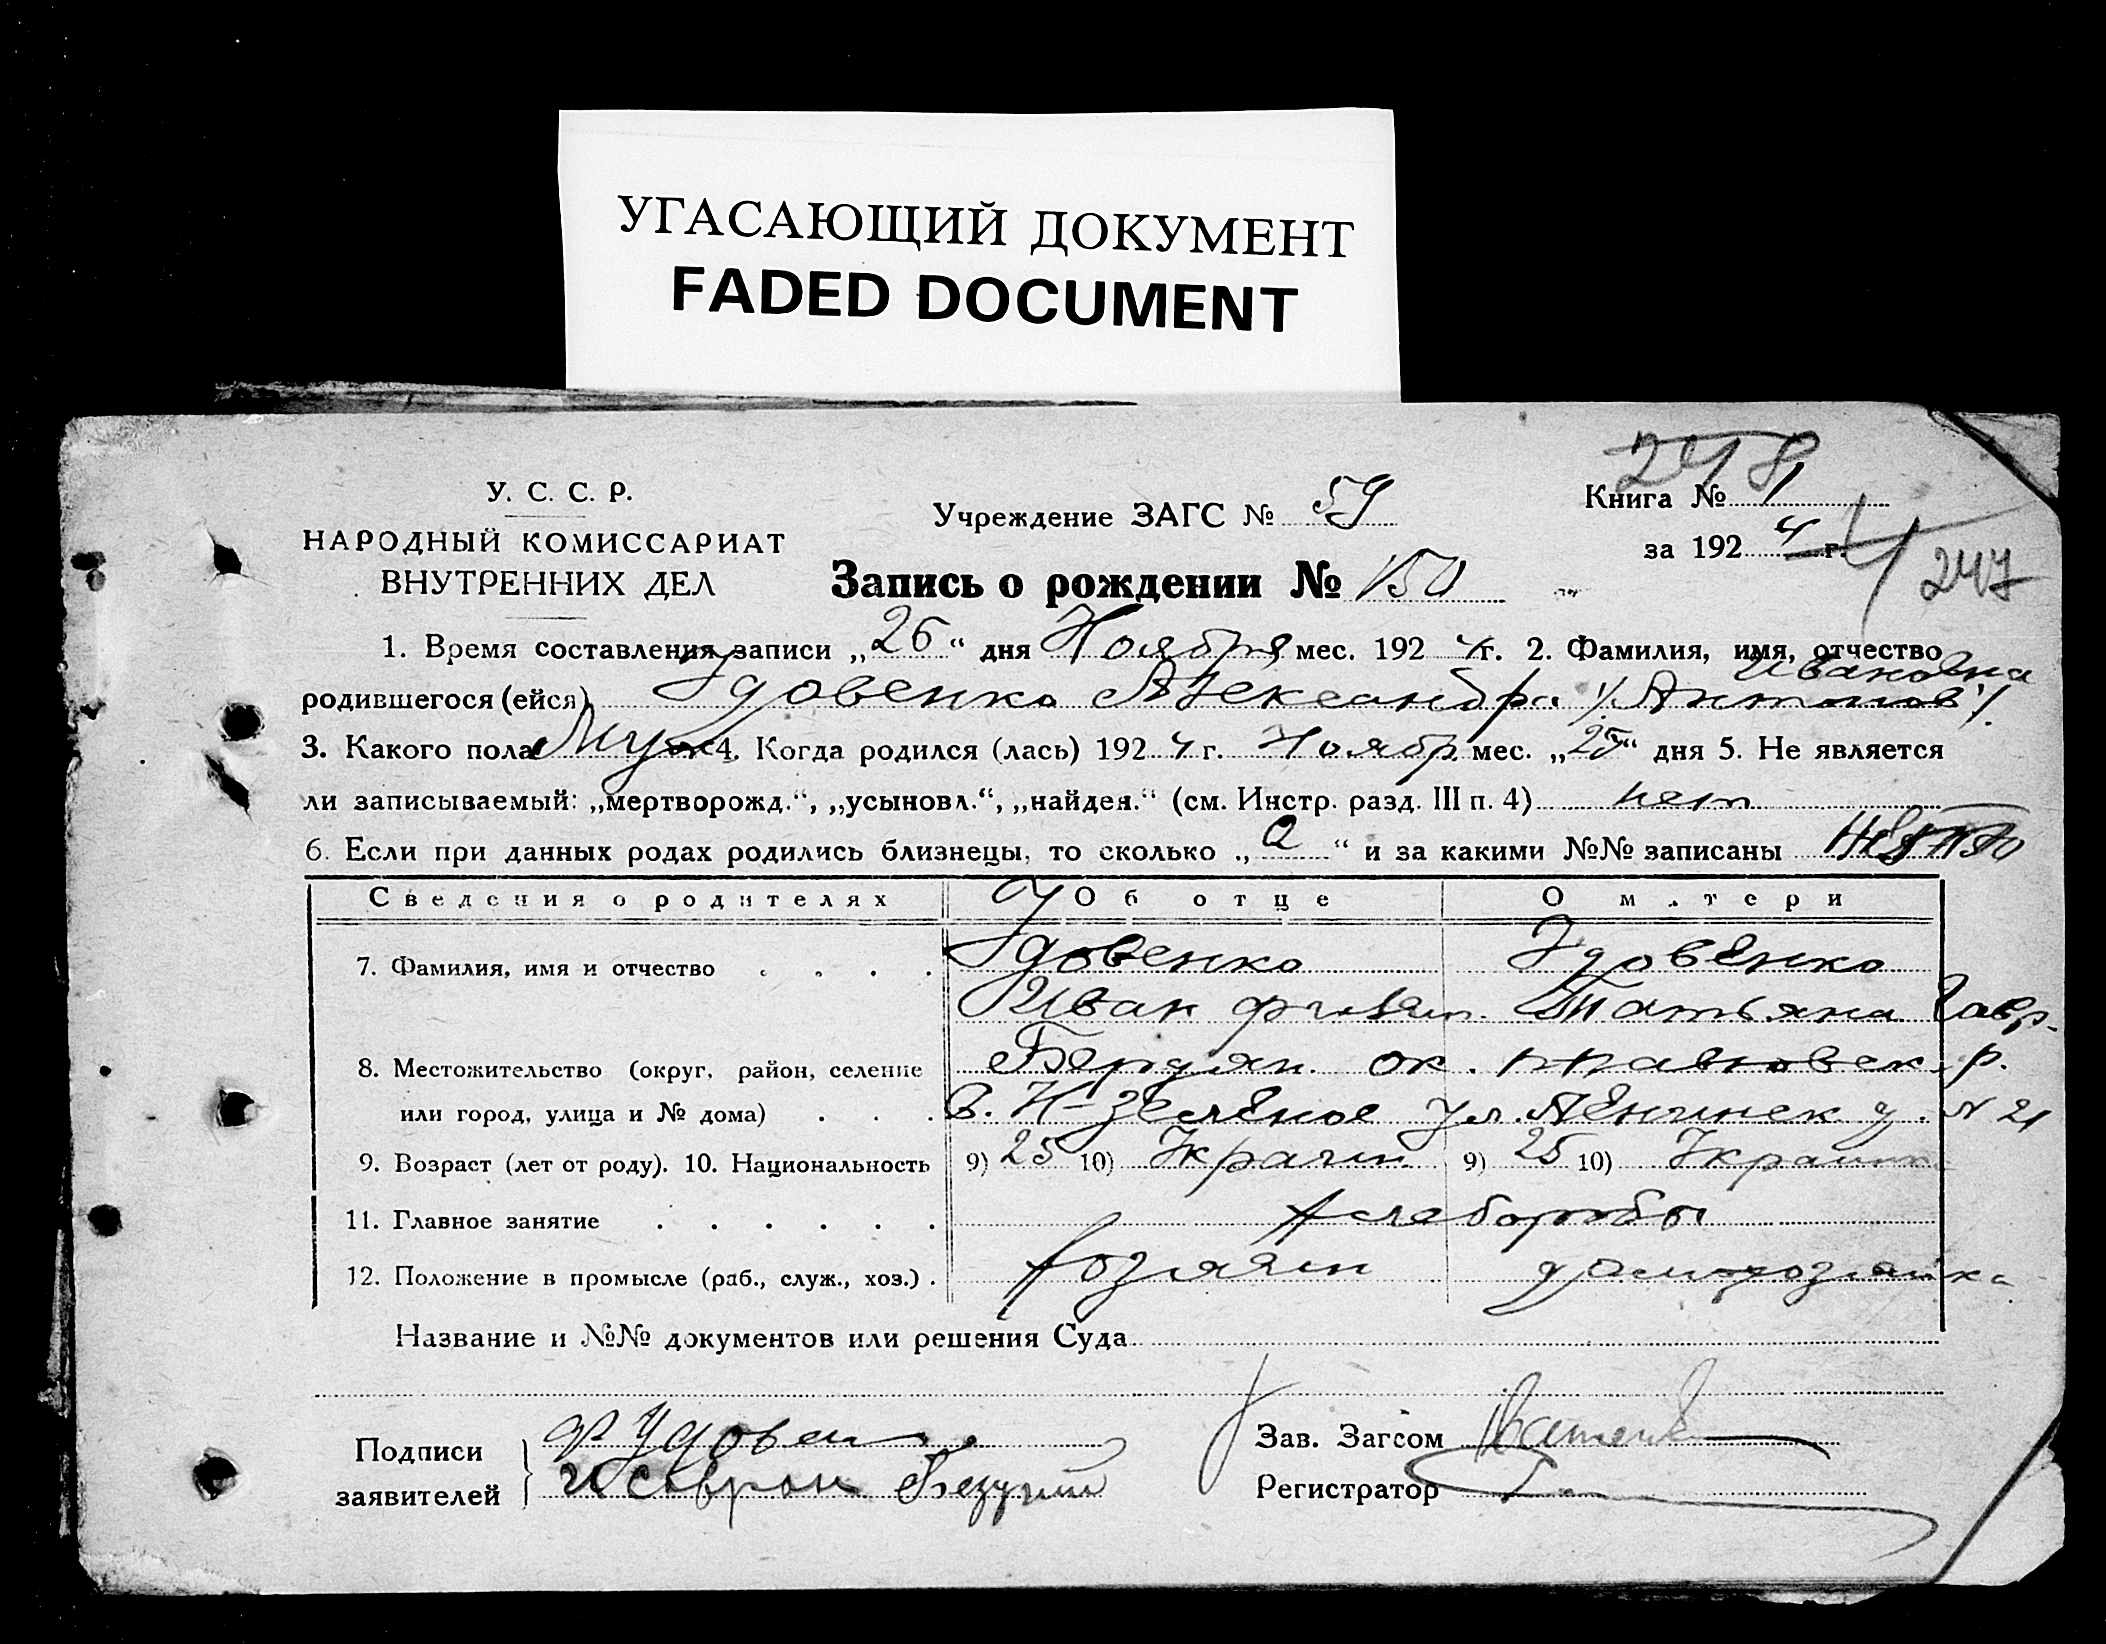 УГАСАЮЩИЙ ДОКУМЕНТ
FADED DOCUMENT
248
У. С. С. Р.
НАРОДНЫЙ КОМИССАРИАТ
ВНУТРЕННИХ ДЕЛ
Учреждение ЗАГС № 59
Книга № 1
за 192 4 г.
247
Запись о рождении № 150
1. Время составления записи „26“ дня Ноября мес. 192 4 г. 2. Фамилия, имя, отчество
Ивановна
родившегося (ейся) Удовенко Александра Антонов
3. Какого пола Муж 4. Когда родился (лась) 192 4 г. Ноябр. мес. „25“ дня 5. Не является
ли записываемый: „мертворожд.“, „усыновл.“, „найден.“ (см. Инстр. разд. III п. 4) нет
6. Если при данных родах родились близнецы, то сколько „2“ и за какими №№ записаны
Сведения о родителях Об отце О матери
7. Фамилия, имя и отчество Удовенко Удовенко
Иван Татьяна Гавр.
8. Местожительство (округ, район, селение Бердян. ок. р.
или город, улица и № дома) С. Н-Зеленое ул. Ленинск у. № 21
9. Возраст (лет от роду). 10. Национальность 9) 25 10) Украин 9) 25 10) Украинка
11. Главное занятие Хлеборобы
12. Положение в промысле (раб., служ., хоз.) Хозяин домохозяйка
Название и №№ документов или решения Суда
Подписи
заявителей
Зав. Загсом
Регистратор